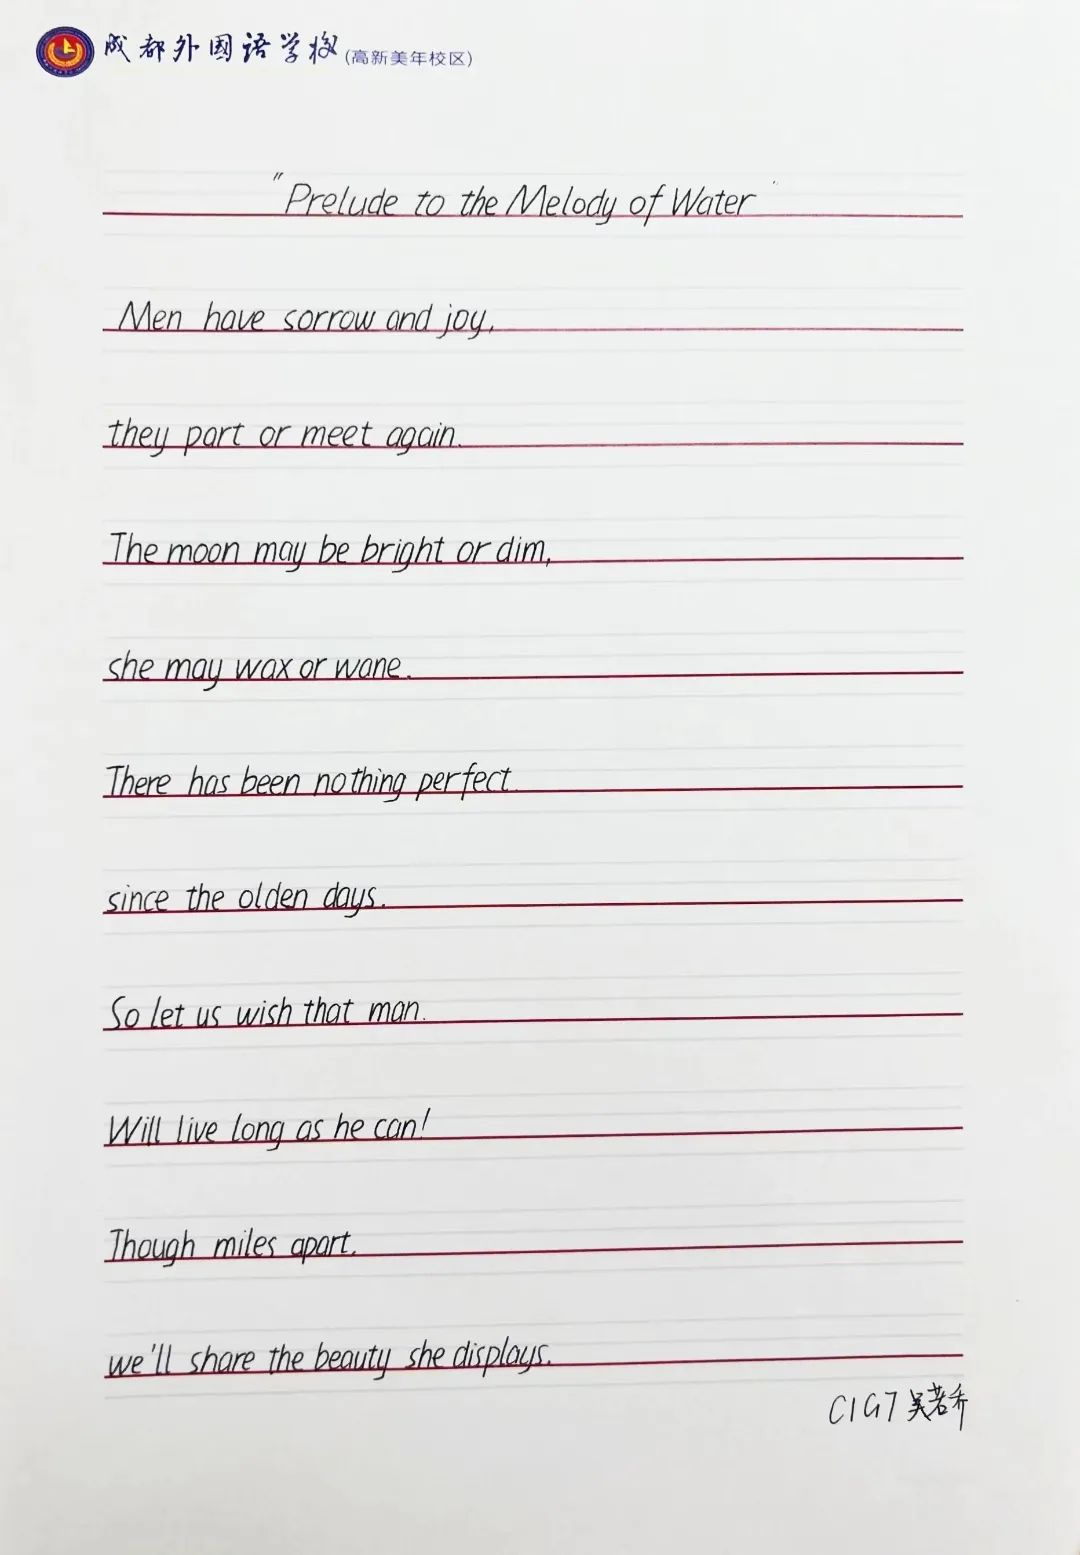 成都外国语学校(高新美年校区)
"Prelude to the Melody of Water"
Men have sorrow and joy,
they part or meet again.
The moon may be bright or dim,
she may wax or wane.
There has been nothing perfect
since the olden days.
So let us wish that man.
Will live long as he can!
Though miles apart,
we'll share the beauty she displays.
C1G7 吴若乔